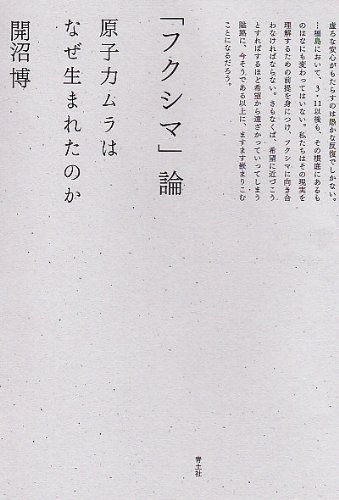 虚ろな安心がもたらすのは愚かな反復でしかない。
…福島において、3・11以後も、その根底にあるも
のはなにも変わってはいない。私たちはその現実を
理解するための前提を身につけ、フクシマに向き合
わなければならない。さもなくば、希望に近づこう
とすればするほど希望から遠ざかっていってしまう
隘路に、今そうである以上に、ますます嵌まりこむ
ことになるだろう。
「フクシマ」論
原子力ムラは
なぜ生まれたのか
開沼 博
青土社